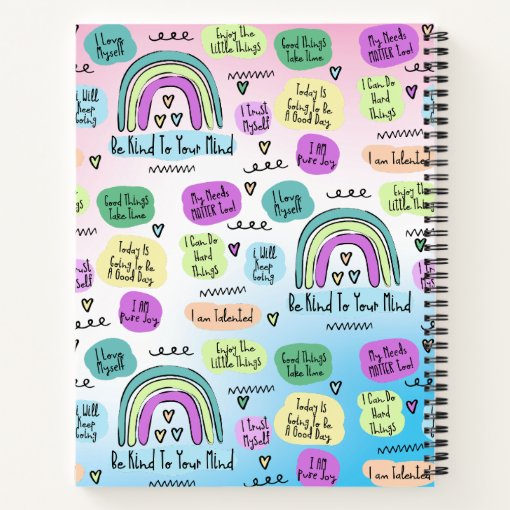 I Love
Myself
Enjoy the
Little Things
Good Things
Take Time
My Needs
MATTER too!
i Will
Keep
Going
I Trust
Myself
Today Is
Going To Be
A Good Day
I Can Do
Hard
Things
Be Kind To Your Mind
I AM
Pure Joy
I am Talented
Good Things
Take Time
My Needs
MATTER too!
I Love
Myself
Enjoy the
Little Things
I Trust
Myself
Today Is
Going To Be
A Good Day
I Can Do
Hard
Things
i Will
Keep
Going
I AM
Pure Joy
I am Talented
Be Kind To Your Mind
I Love
Myself
Enjoy the
Little Things
Good Things
Take Time
My Needs
MATTER too!
i Will
Keep
Going
I Trust
Myself
Today Is
Going To Be
A Good Day
I Can Do
Hard
Things
Be Kind To Your Mind
I AM
Pure Joy
I am Talented